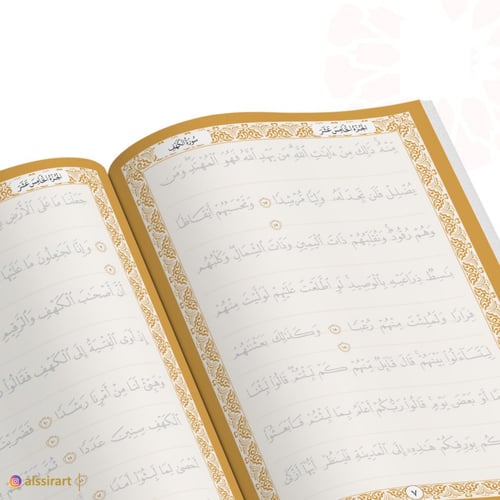 الجزء الخامس عشر
سورة الكهف
مِّنْهُ ذَٰلِكَ مِنْ ءَايَٰتِ ٱللَّهِ مَن يَهْدِ ٱللَّهُ فَهُوَ ٱلْمُهْتَدِ وَمَن
يُضْلِلْ فَلَن تَجِدَ لَهُۥ وَلِيًّا مُّرْشِدًا ١٧ وَتَحْسَبُهُمْ أَيْقَاظًا
وَهُمْ رُقُودٌ وَنُقَلِّبُهُمْ ذَاتَ ٱلْيَمِينِ وَذَاتَ ٱلشِّمَالِ وَكَلْبُهُم
بَٰسِطٌ ذِرَاعَيْهِ بِٱلْوَصِيدِ لَوِ ٱطَّلَعْتَ عَلَيْهِمْ لَوَلَّيْتَ مِنْهُمْ
فِرَارًا وَلَمُلِئْتَ مِنْهُمْ رُعْبًا ١٨ وَكَذَٰلِكَ بَعَثْنَٰهُمْ
لِيَتَسَآءَلُوا۟ بَيْنَهُمْ قَالَ قَآئِلٌ مِّنْهُمْ كَمْ لَبِثْتُمْ قَالُوا۟ لَبِثْنَا
أَوْ بَعْضَ يَوْمٍ قَالُوا۟ رَبُّكُمْ أَعْلَمُ بِمَا لَبِثْتُمْ فَٱبْعَثُوٓا۟
بِوَرِقِكُمْ هَٰذِهِۦٓ إِلَى ٱلْمَدِينَةِ فَلْيَنظُرْ أَيُّهَآ أَزْكَىٰ
٧
الجزء الخامس عشر
جَعَلْنَا مَا عَلَى ٱلْأَرْضِ
وَإِنَّا لَجَٰعِلُونَ مَا عَلَيْهَا
أَنَّ أَصْحَٰبَ ٱلْكَهْفِ وَٱلرَّقِيمِ
إِذْ أَوَى ٱلْفِتْيَةُ إِلَى ٱلْكَهْفِ فَقَالُوا۟
وَهَيِّئْ لَنَا مِنْ أَمْرِنَا رَشَدًا ١٠ فَضَرَبْنَا
ٱلْكَهْفِ سِنِينَ عَدَدًا ١١
أَحْصَىٰ لِمَا لَبِثُوٓا۟ أَمَدًا
alssirart